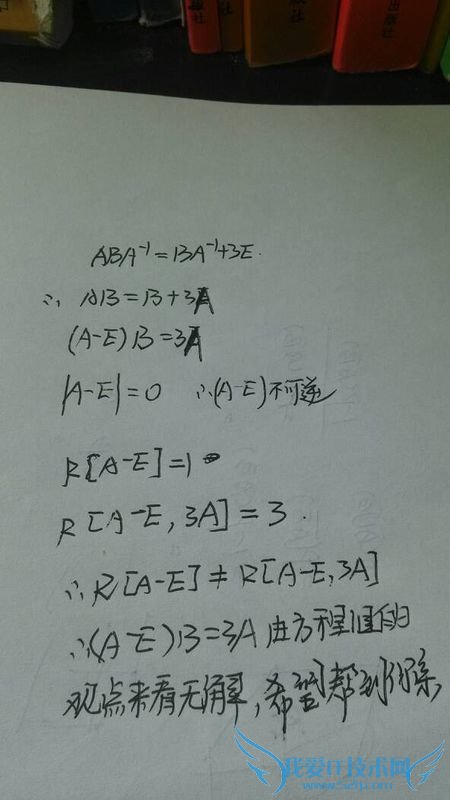 出版社
ABA⁻¹=BA⁻¹+3E.
∴ AB=B+3A
(A-E)B=3A
|A-E|=0 ∴(A-E)不可逆
R[A-E]=1
R[A-E,3A]=3.
∴R[A-E]≠R[A-E,3A]
∴(A-E)B=3A 由方程组的
观点来看无解,希望帮到你,
我爱IT技术网
www.52ij.com